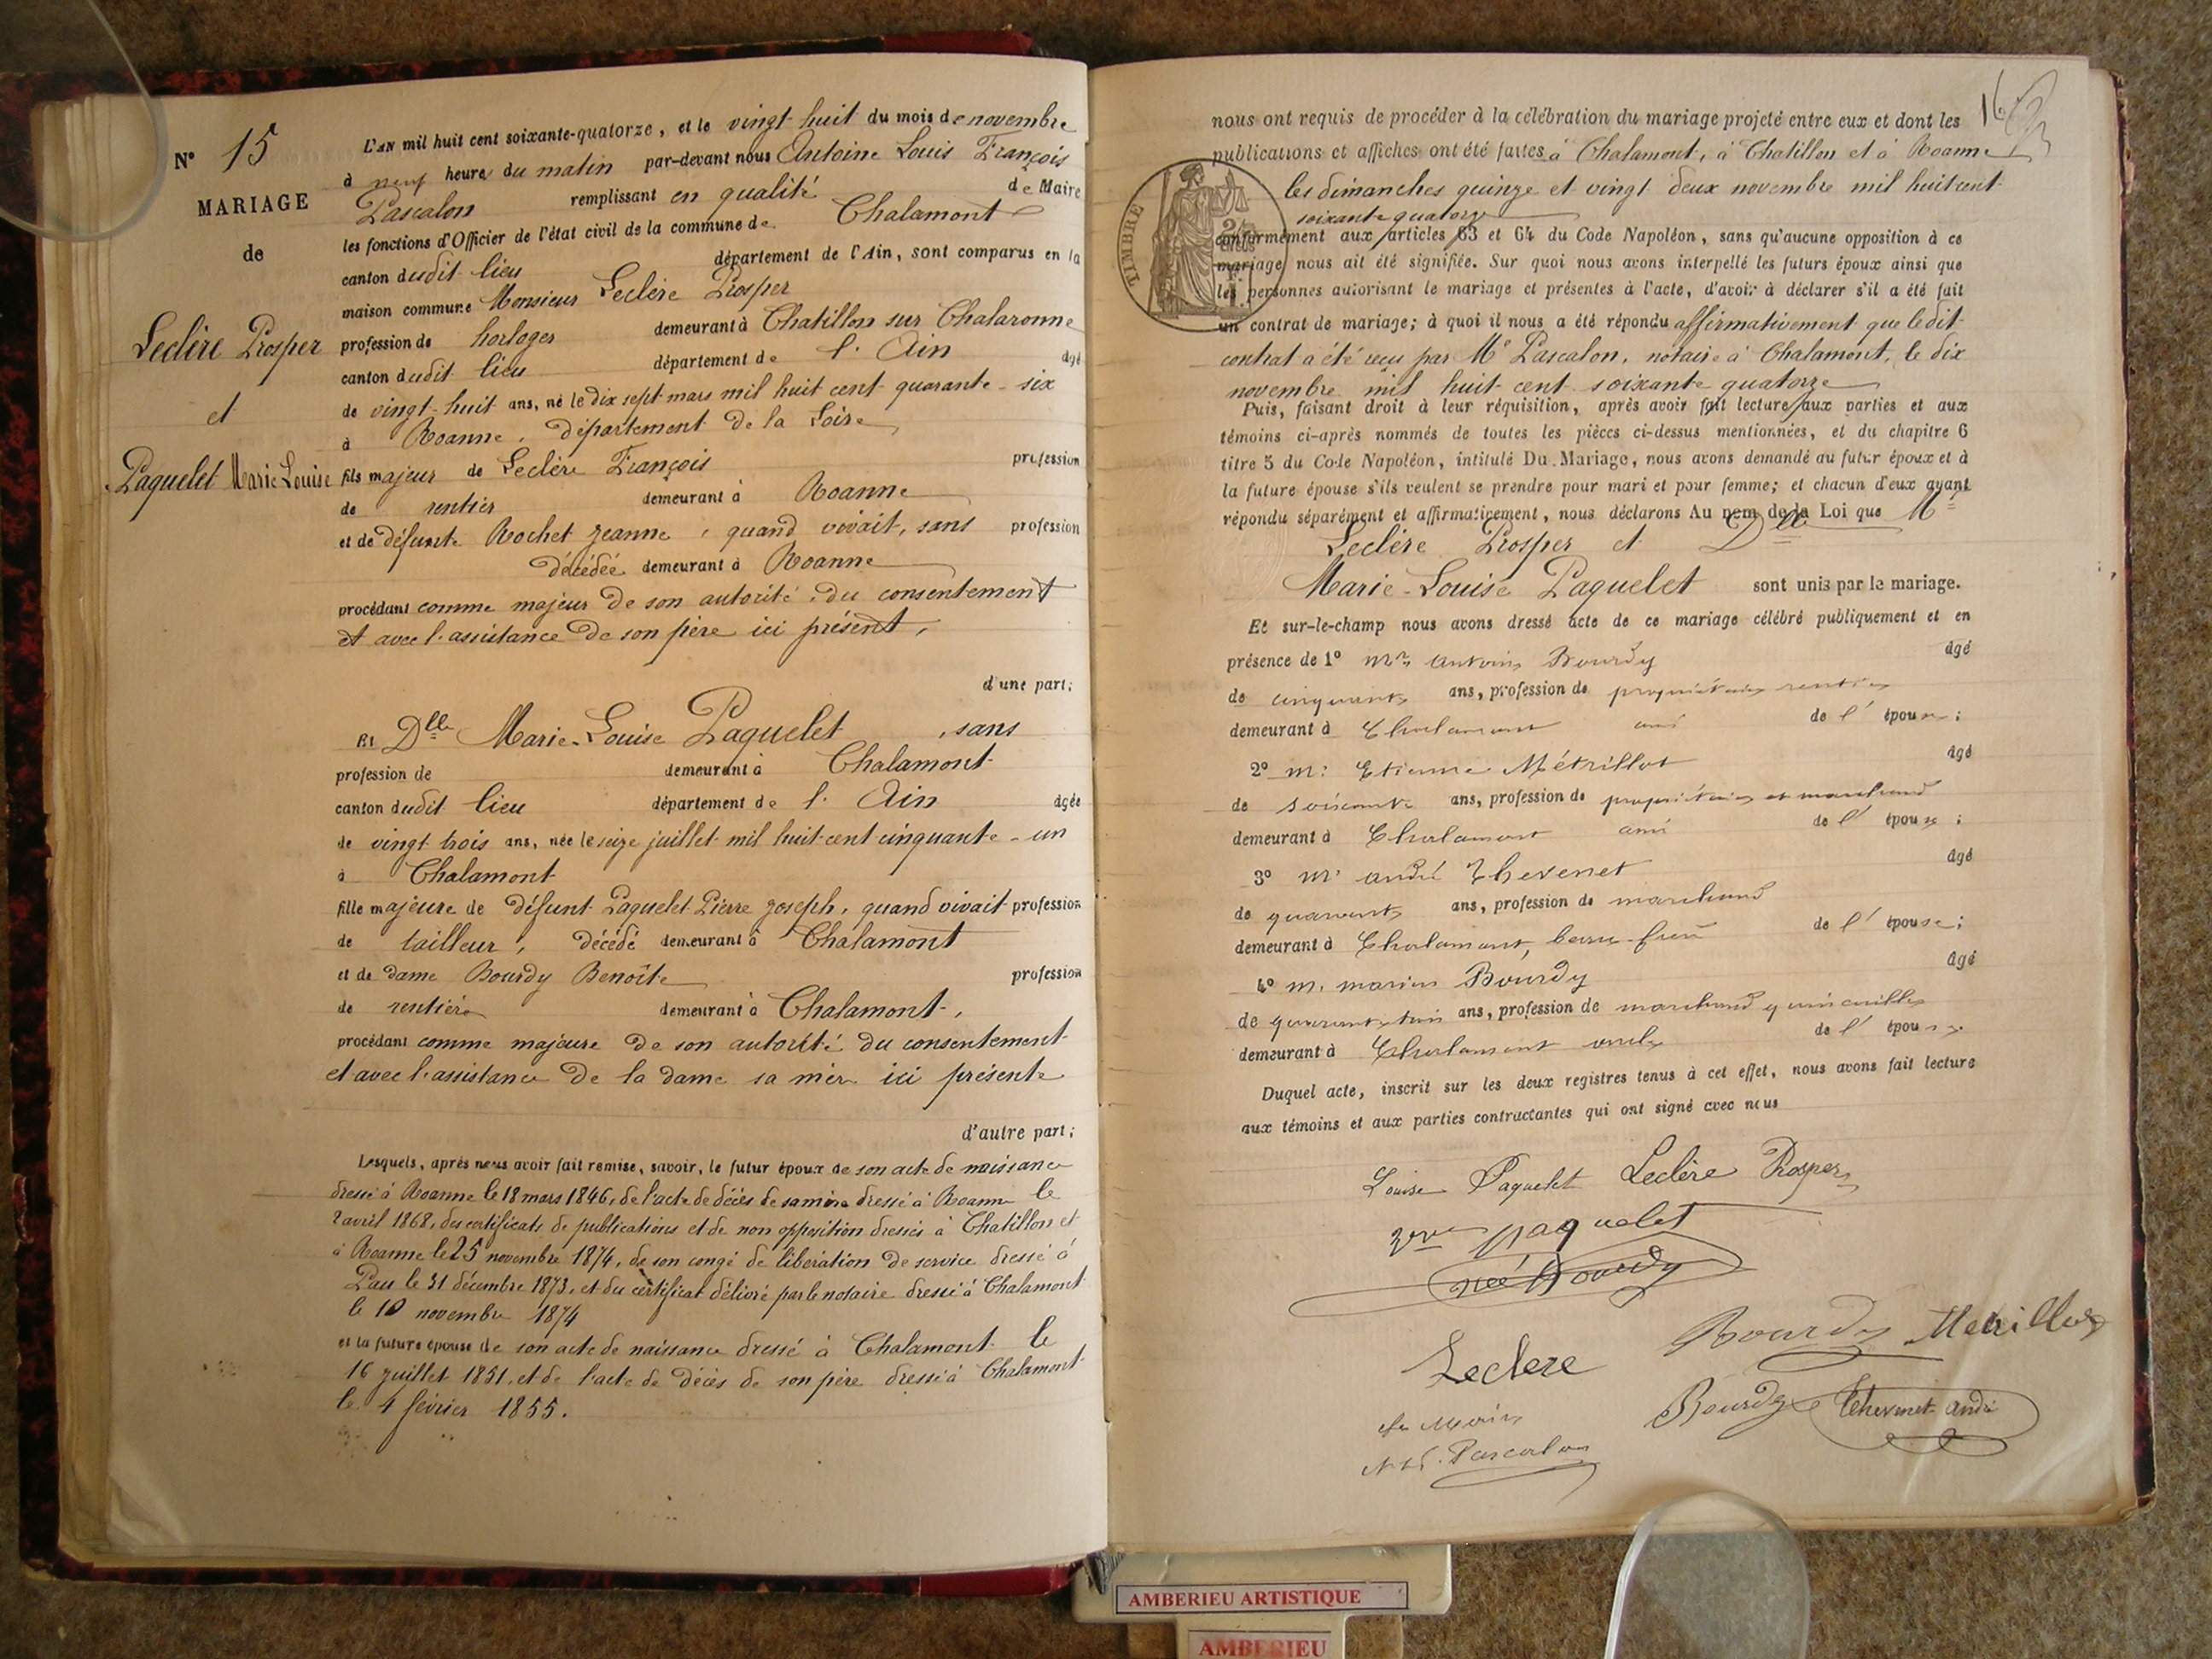 N° 15
MARIAGE
de
Leclère Prosper
et
Paquelet Marie Louise
L'AN mil huit cent soixante-quatorze, et le vingt-huit du mois de novembre
à neuf heure du matin par-devant nous Antoine Louis François
Pascalon remplissant en qualité de Maire
les fonctions d'Officier de l'état civil de la commune de Chalamont
canton dudit lieu département de l'Ain, sont comparus en la
maison commune Monsieur Leclère Prosper
profession de horloger demeurant à Chatillon sur Chalaronne
canton dudit lieu département de l'Ain âgé
de vingt-huit ans, né le dix sept mars mil huit cent quarante-six
à Roanne, département de la Loire
fils majeur de Leclère François profession
de rentier demeurant à Roanne
et de défunte Rochet Jeanne, quand vivait, sans profession
décédée demeurant à Roanne
procédant comme majeur de son autorité, du consentement
et avec l'assistance de son père ici présent,
d'une part;
Et Dlle Marie-Louise Paquelet, sans
profession de demeurant à Chalamont
canton dudit lieu département de l'Ain âgée
de vingt trois ans, née le seize juillet mil huit cent cinquante-un
à Chalamont
fille majeure de défunt Paquelet Pierre Joseph, quand vivait profession
de tailleur, décédé demeurant à Chalamont
et de dame Bourdy Benoîte profession
de rentière demeurant à Chalamont,
procédant comme majeure de son autorité du consentement
et avec l'assistance de la dame sa mère ici présente
d'autre part;
Lesquels, après nous avoir fait remise, savoir, le futur époux de son acte de naissance
dressé à Roanne le 18 mars 1846, de l'acte de décès de sa mère dressé à Roanne le
2 avril 1868, des certificats de publications et de non opposition dressés à Chatillon et
à Roanne le 25 novembre 1874, de son congé de libération de service dressé à
Pau le 31 décembre 1873, et du certificat délivré par le notaire dressé à Chalamont
le 10 novembre 1874
et la future épouse de son acte de naissance dressé à Chalamont le
16 juillet 1851, et de l'acte de décès de son père dressé à Chalamont
le 4 février 1855.
16
nous ont requis de procéder à la célébration du mariage projeté entre eux et dont les
publications et affiches ont été faites à Chalamont, à Chatillon et à Roanne
les dimanches quinze et vingt deux novembre mil huit cent
soixante quatorze
TIMBRE
conformément aux articles 63 et 64 du Code Napoléon, sans qu'aucune opposition à ce
mariage nous ait été signifiée. Sur quoi nous avons interpellé les futurs époux ainsi que
les personnes autorisant le mariage et présentes à l'acte, d'avoir à déclarer s'il a été fait
un contrat de mariage; à quoi il nous a été répondu affirmativement que ledit
contrat a été reçu par Me Pascalon, notaire à Chalamont, le dix
novembre mil huit cent soixante quatorze
Puis, faisant droit à leur réquisition, après avoir fait lecture aux parties et aux
témoins ci-après nommés de toutes les pièces ci-dessus mentionnées, et du chapitre 6
titre 5 du Code Napoléon, intitulé Du Mariage, nous avons demandé au futur époux et à
la future épouse s'ils veulent se prendre pour mari et pour femme; et chacun d'eux ayant
répondu séparément et affirmativement, nous déclarons Au nom de la Loi que Mr
Leclère Prosper et Dlle
Marie-Louise Paquelet sont unis par le mariage.
Et sur-le-champ nous avons dressé acte de ce mariage célébré publiquement et en
présence de 1° Mr Antoine Bourdy âgé
de cinquante ans, profession de propriétaire rentier
demeurant à Chalamont ami de l'épouse;
2° m. Etienne Métrillot âgé
de soixante ans, profession de propriétaire et marchand
demeurant à Chalamont ami de l'épouse;
3° mr andré Thevenet âgé
de quarante ans, profession de marchand
demeurant à Chalamont, beau-frère de l'épouse;
4° m. marius Bourdy âgé
de quarante trois ans, profession de marchand quincailler
demeurant à Chalamont oncle de l'épouse
Duquel acte, inscrit sur les deux registres tenus à cet effet, nous avons fait lecture
aux témoins et aux parties contractantes qui ont signé avec nous
Louise Paquelet Leclère Prosper
Vve paquelet
née Bourdy
Bourdy Metrillot
Leclere
Bourdy Thevenet André
le Maire
Pascalon
AMBERIEU ARTISTIQUE
AMBERIEU